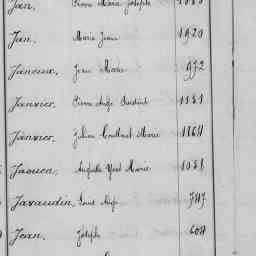 Jan, Pierre Marie Joseph
Jan, Marie Jean 1920
Janeux, Jean Marie 972
Janvier, Pierre Ange 1151
Janvier, Julien Marie 1164
Jaouen, Auguste Marie 1051
Javaudin, Louis Ange 747
Jean, Joseph 604